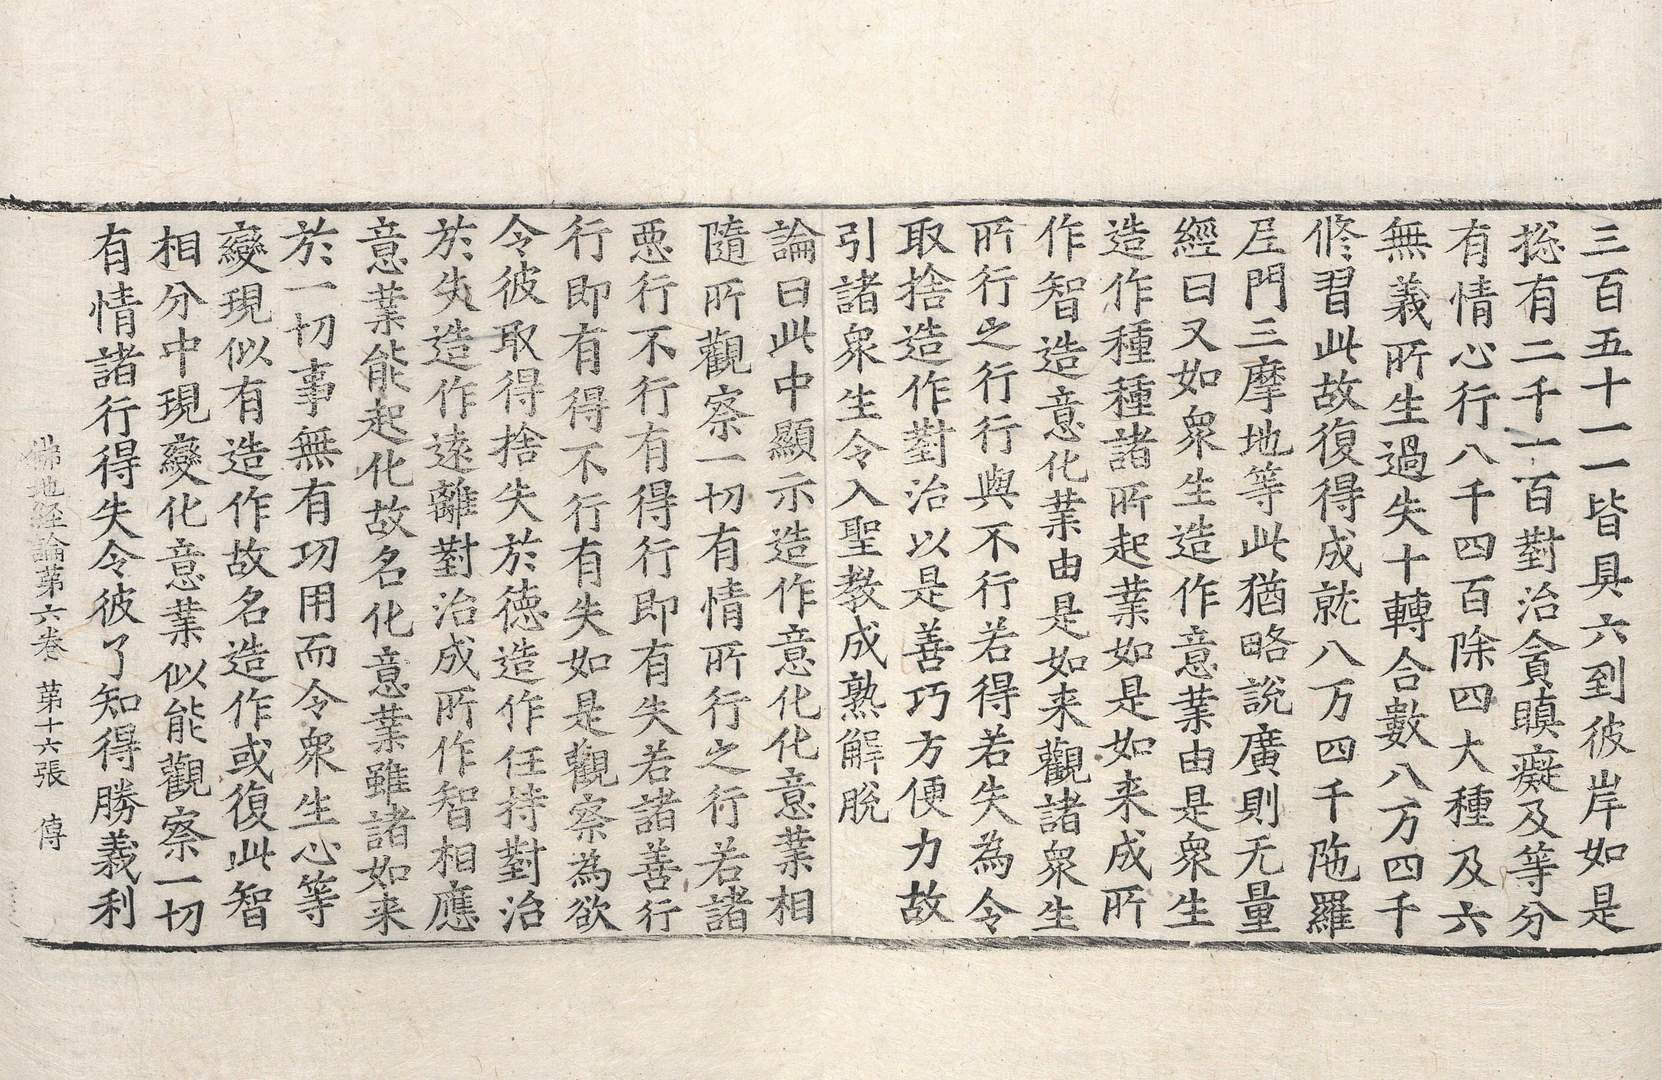 三百五十一一皆具六到彼岸如是
捴有二千一百對治貪瞋癡及等分
有情心行八千四百除四大種及六
無義所生過失十轉合數八万四千
修習此故復得成就八万四千陁羅
𡰱門三摩地等此猶略說廣則无量
經曰又如衆生造作意業由是衆生
造作種種諸所起業如是如来成所
作智造意化業由是如来觀諸衆生
所行之行行與不行若得若失為令
取捨造作對治以是善巧方便力故
引諸衆生令入聖教成熟解脫
論曰此中顯示造作意化化意業相
隨所觀察一切有情所行之行若諸
惡行不行有得行即有失若諸善行
行即有得不行有失如是觀察為欲
令彼取得捨失於德造作任持對治
於失造作遠離對治成所作智相應
意業能起化故名化意業雖諸如来
於一切事無有功用而令衆生心等
變現似有造作故名造作或復此智
相分中現變化意業似能觀察一切
有情諸行得失令彼了知得勝義利
佛地経論第六卷 第十六張 傳